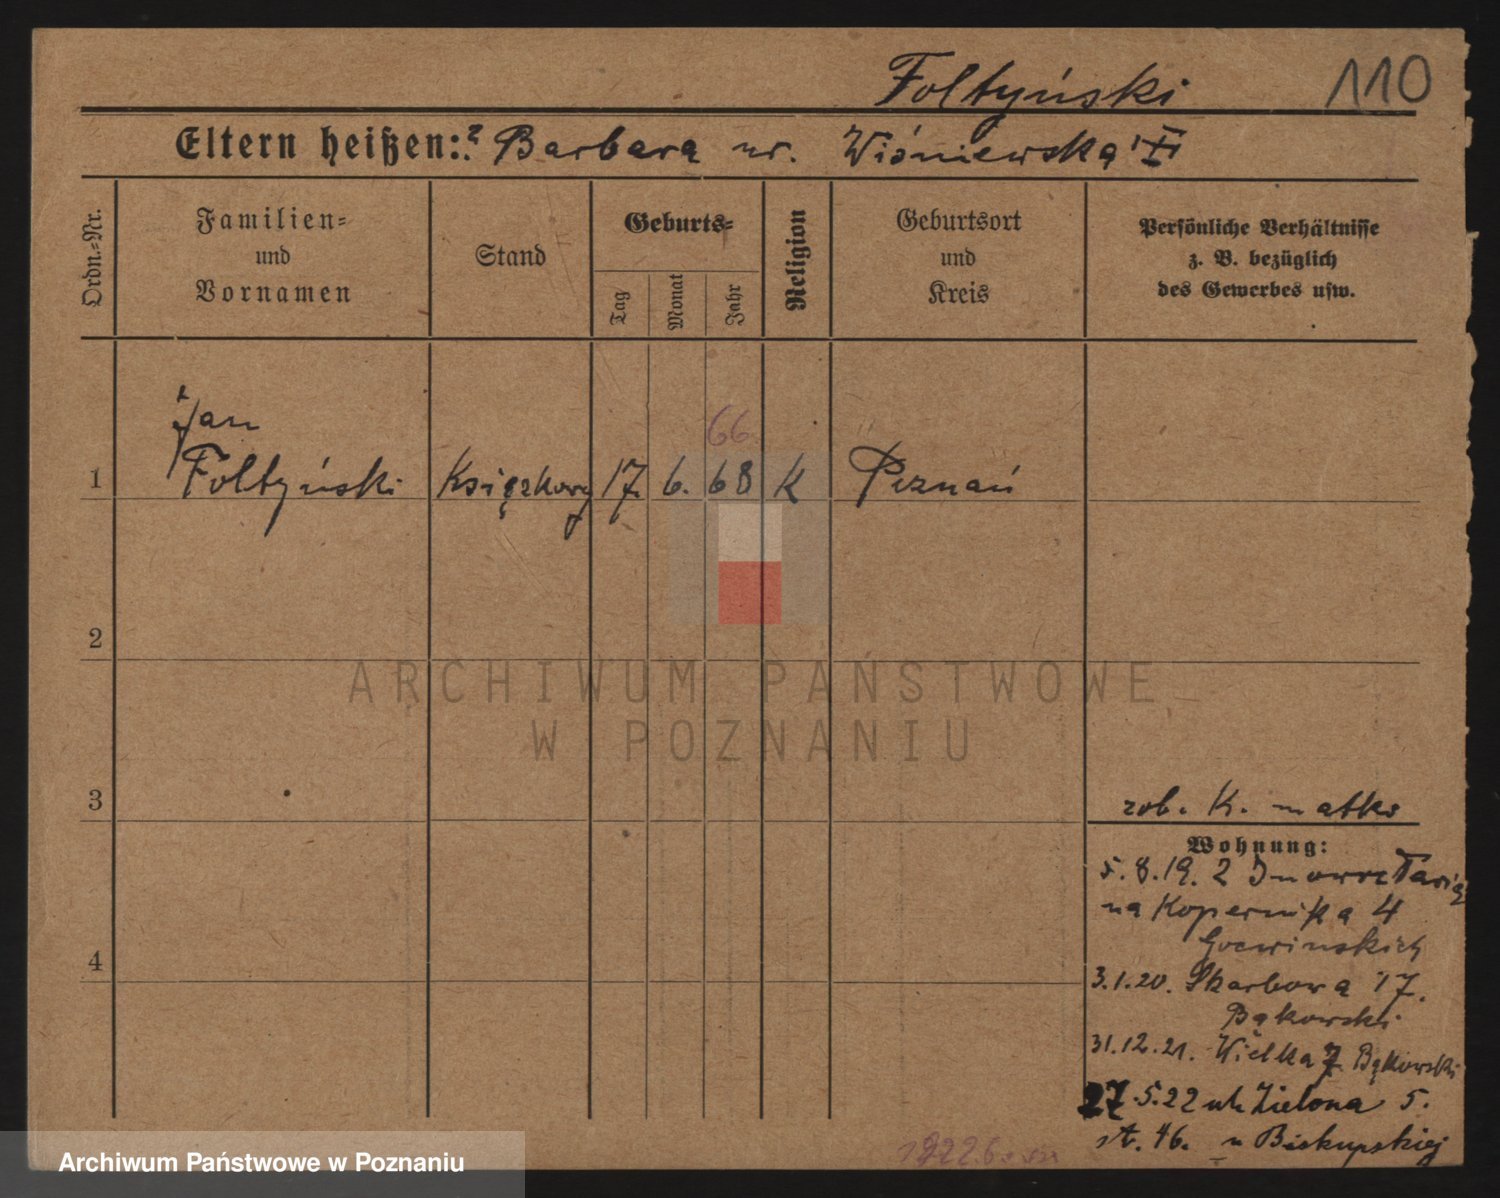 Foltyński 110
Eltern heißen: ? Barbara ur. Wiśniewska
Ordn.-Nr.
Familien-
und
Vornamen
Stand
Geburts-
Tag
Monat
Jahr
Religion
Geburtsort
und
Kreis
Persönliche Verhältnisse
z. B. bezüglich
des Gewerbes usw.
Jan
66
1 Foltyński Książkowy 17. 6. 68 K Poznań
2
ARCHIWUM PAŃSTWOWE
W POZNANIU
3
rob. K. matka
Wohnung:
5.8.19. z Inowrocławia
na Kopernika 4
4
3.1.20. Skarbowa 17.
Bąkowski
31.12.21. Wielka 7. Bąkowski
27.5.22 ul. Zielona 5.
st. 46. u Biskupskiej
Archiwum Państwowe w Poznaniu